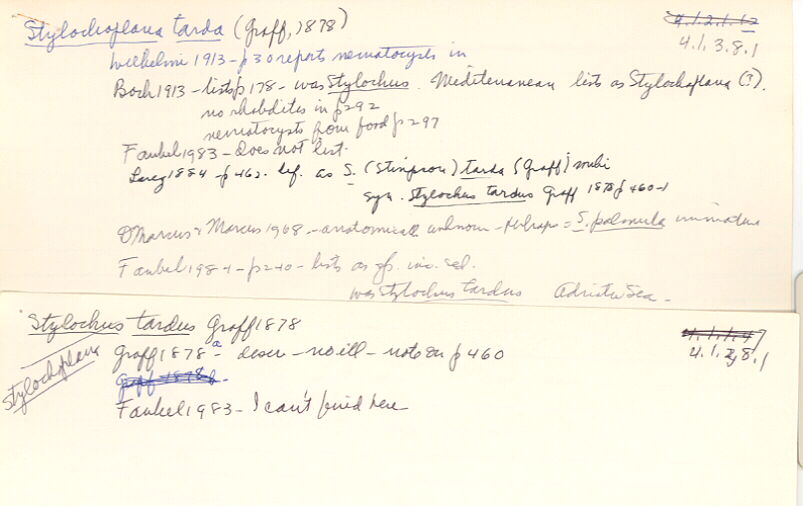 Stylochoplana tarda (Graff, 1878)
4.1.2.1.12
4.1.3.8.1
Wilhelmi 1913 - p30 reports nematocysts in
Bock 1913 - lists p178 - was Stylochus. Mediterranean lists as Stylochoplana (?).
no rhabdites in p292
nematocysts from food p297
Faubel 1983 - Does not list.
Lang 1884 - p462. def. as S. (Stimpson) tarda (Graff) mihi
syn. Stylochus tardus Graff 1878 p460-1
Marcus & Marcus 1968 - anatomically unknown - perhaps = S. palmula immature
Faubel 1984 - p240 - lists as sp. inc. sed.
was Stylochus tardus Adriatic Sea -
Stylochus tardus Graff 1878
Stylochoplana
4.1.1.1.47
4.1.3.8.1
Graff 1878 a - descr - no ill - note on p460
Graff 1878 b -
Faubel 1983 - I can't find here